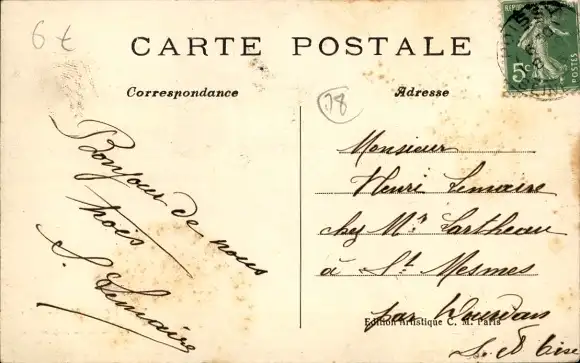 6 €
CARTE POSTALE
Correspondance
Adresse
78
5c
POSTES
Bonjour de nous
trois
S. Lemaire
Monsieur
Henri Lemaire
chez Mr Lartheau
à St Mesmes
par Dourdan
Edition Artistique C. M. Paris
S. et Oise